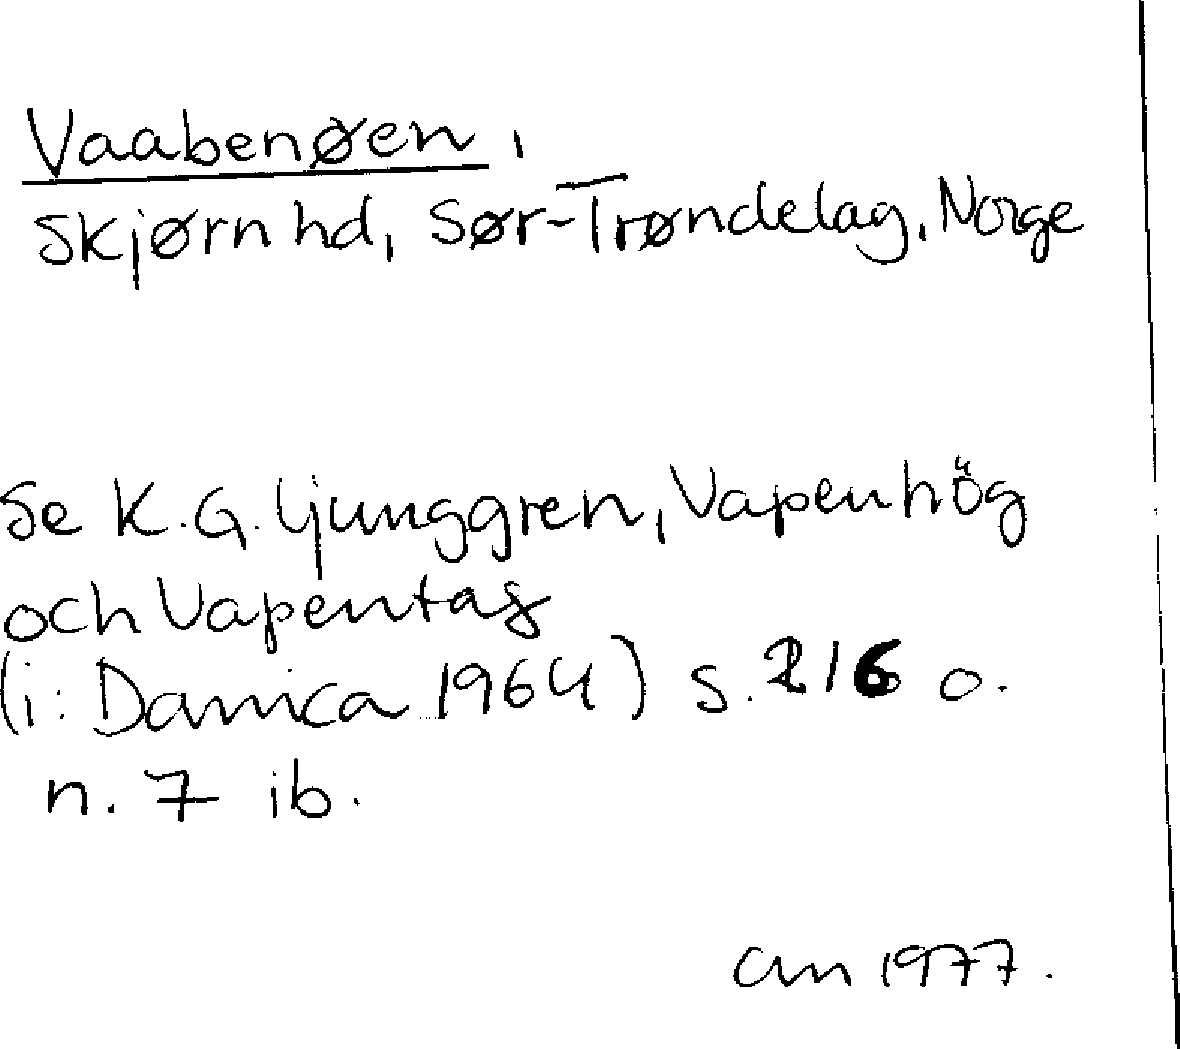 Vaabenøen,
Skjørn hd, Sør-Trøndelag, Norge
Se K.G. Ljunggren, Vapenhög
och Vapentag
(i: Danica 1964) s. 216 o.
n. 7 ib.
am 1977.